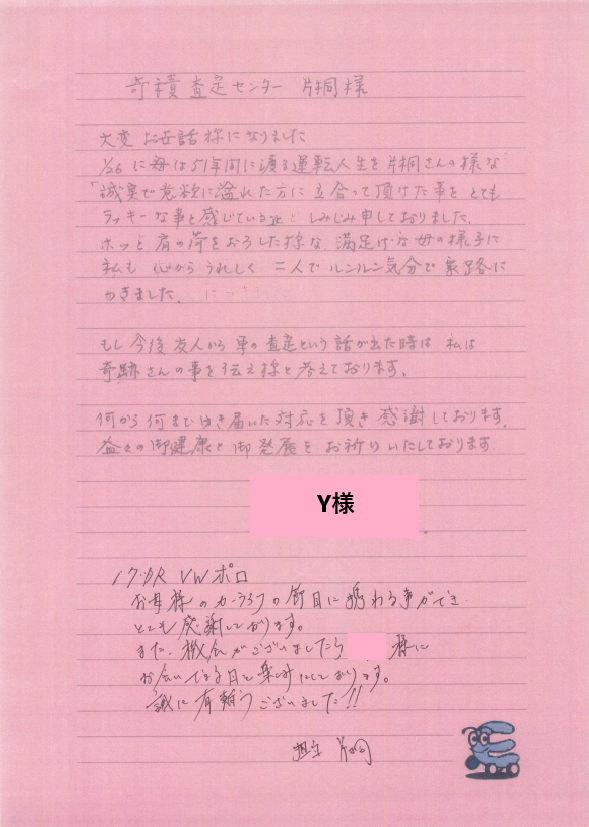 奇積査定センター 片桐様
大変 お世話様になりました
1/26 に母は51年間に渡る運転人生を片桐さんの様な
「誠実で意欲に溢れた方に立合って頂けた事を とても
ラッキーな事と感じている」と しみじみ申しておりました。
ホッと肩の荷をおろした様な 満足げな母の様子に
私も 心から うれしく 二人で ルンルン気分で 家路に
つきました。
もし今後友人から車の査定という話が出た時は 私は
奇跡さんの事を伝え様と考えております。
何から何までゆき届いた対応を頂き 感謝しております。
益々の御健康と御発展を お祈りいたしております。
Y様
VWポロ
お母様のカーライフの節目に携わる事ができ
とても感謝しております。
また、機会がございましたら 様に
お会いできる日を楽しみにしております。
誠に有難うございました!!
担当 片桐